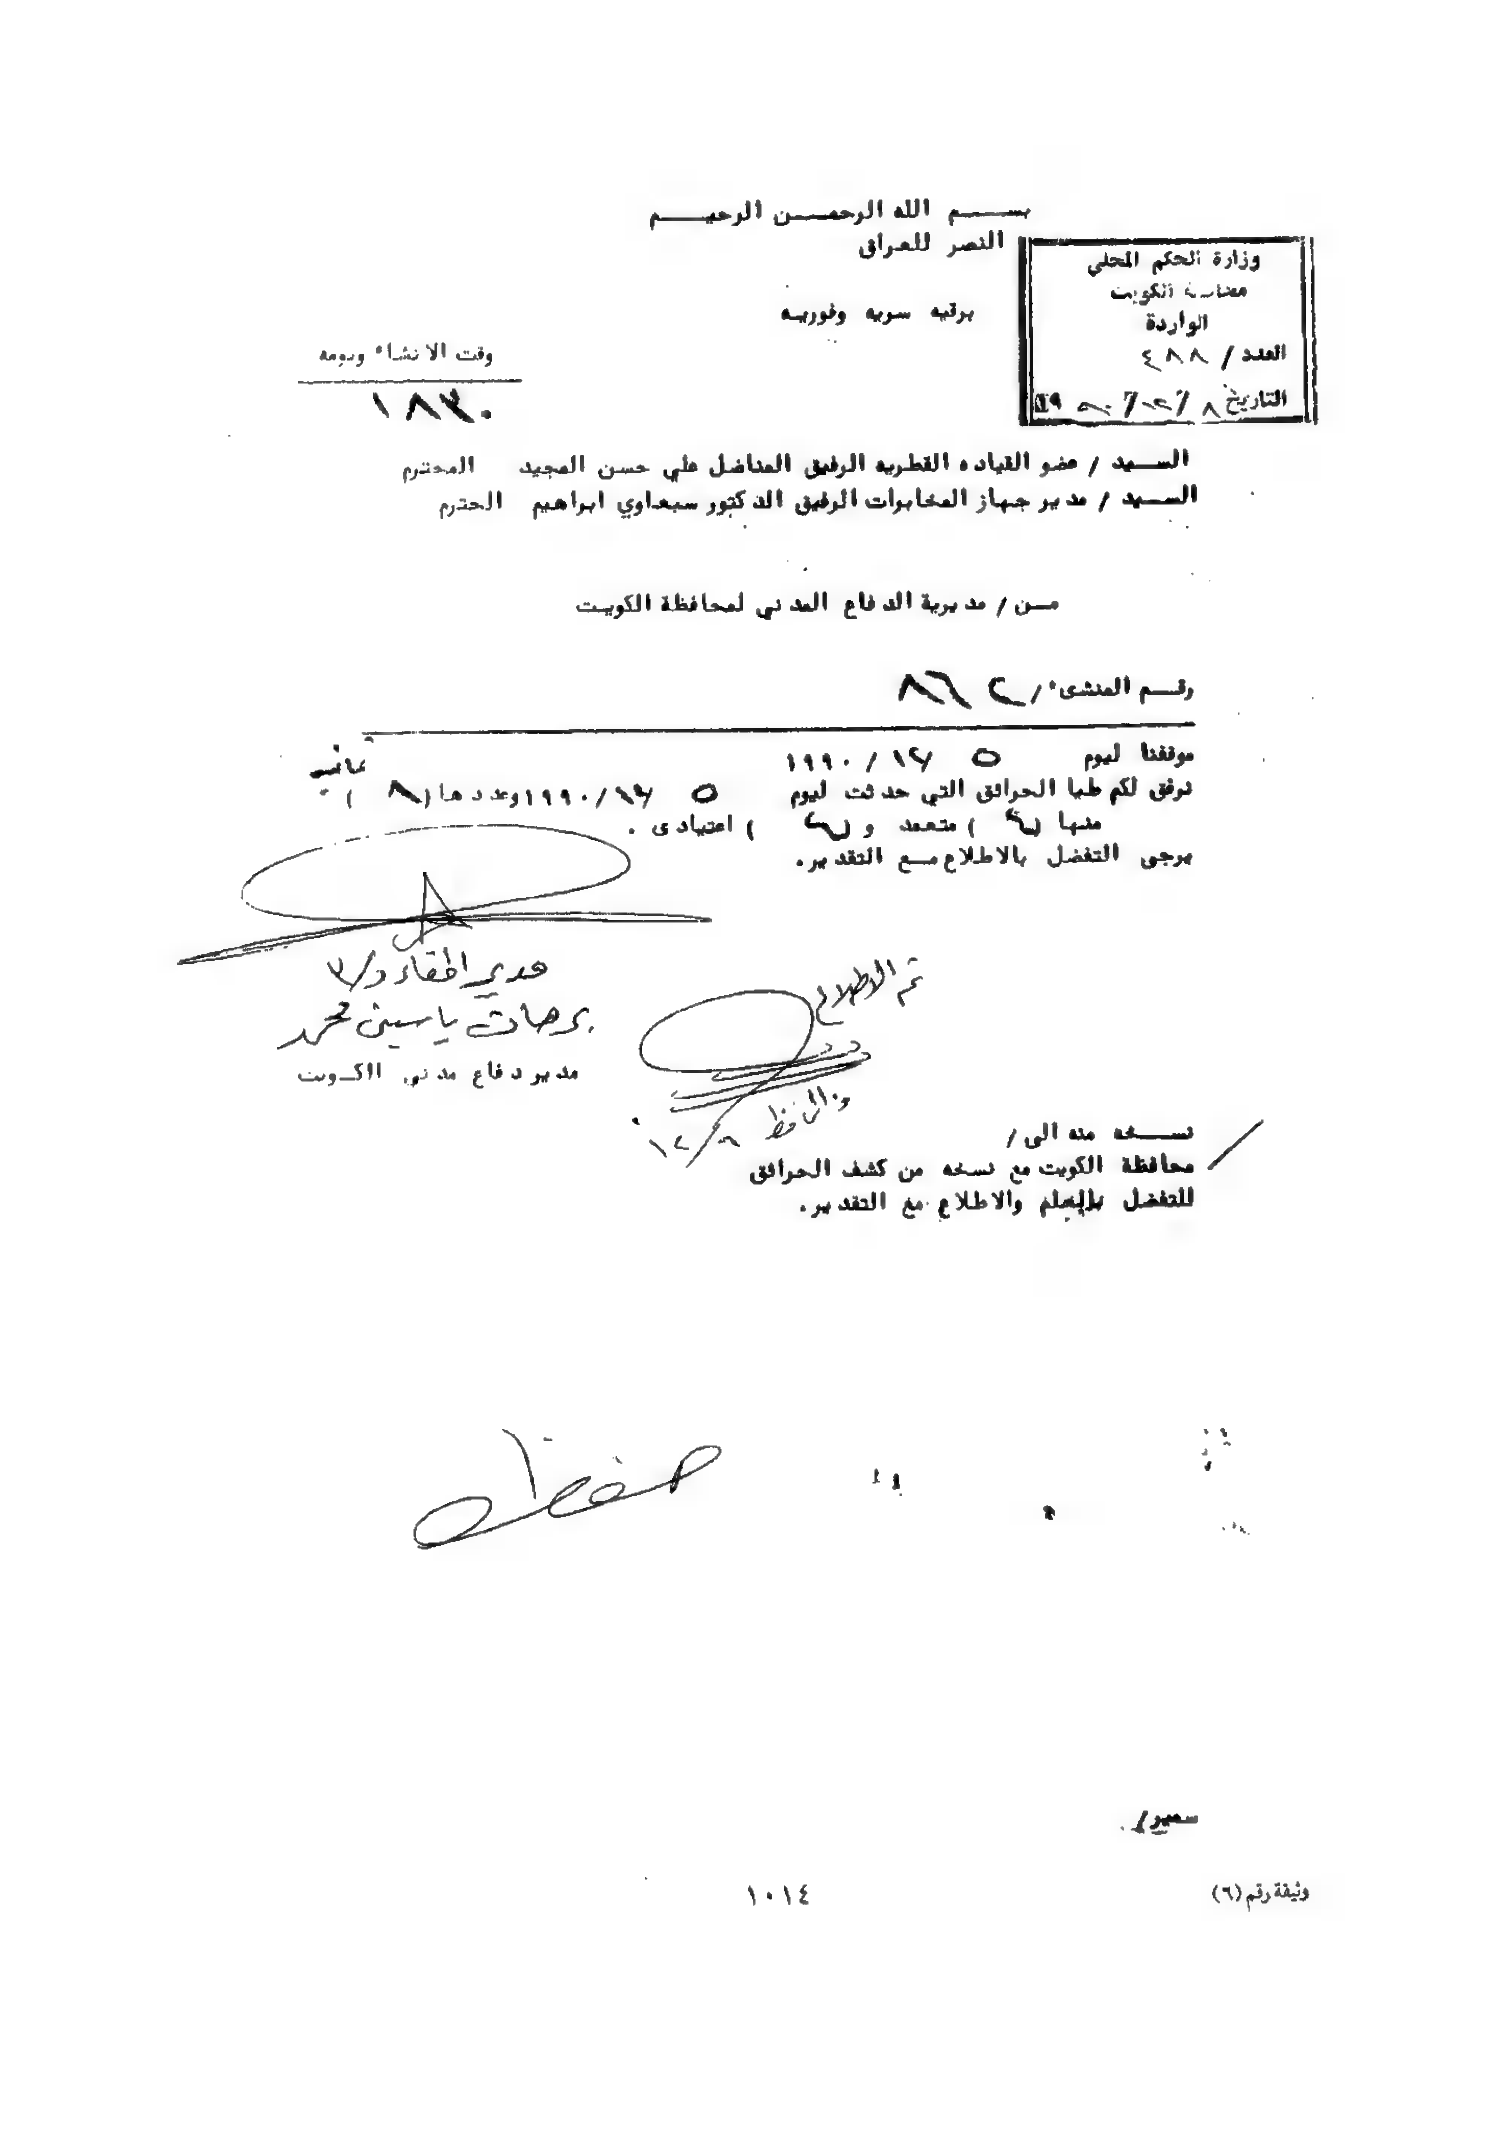 بســـم الله الرحمــن الرحيـــم
النصر للعراق
وزارة الحكم المحلي
محافظة الكويت
الواردة
العدد / ٤٨٨
التاريخ ٨ /١٢/ ١٩٩٠
برقيه سريه وفوريـه
وقت الانشاء ويومه
١٨٣٠
الســيد / عضو القياده القطريه الرفيق المناضل علي حسن المجيد المحترم
الســيد / مدير جهاز المخابرات الرفيق الدكتور سبعاوي ابراهيم الحترم
مــن / مديرية الدفاع المدني لمحافظة الكويـت
رقــم المنشىء /
موقفنا ليوم ٥ /١٢/ ١٩٩٠
نرفق لكم طيا الحرائق التي حدثت ليوم ٥ /١٢/ ١٩٩٠ وعددها (٨) ثمانيه
منها ( ) متعمد و ( ) اعتيادى .
يرجى التفضل بالاطلاع مــع التقدير.
تم الاطلاع
المحافظ
١٢/٦
برهان ياسين محمد
مدير دفاع مدني الكـويت
نســـخه منه الى /
محافظة الكويت مع نسخه من كشف الحرائق
للتفضل بالعلم والاطلاع مع التقدير.
سمير/.
وثيقة رقم (٦)
١٠١٤